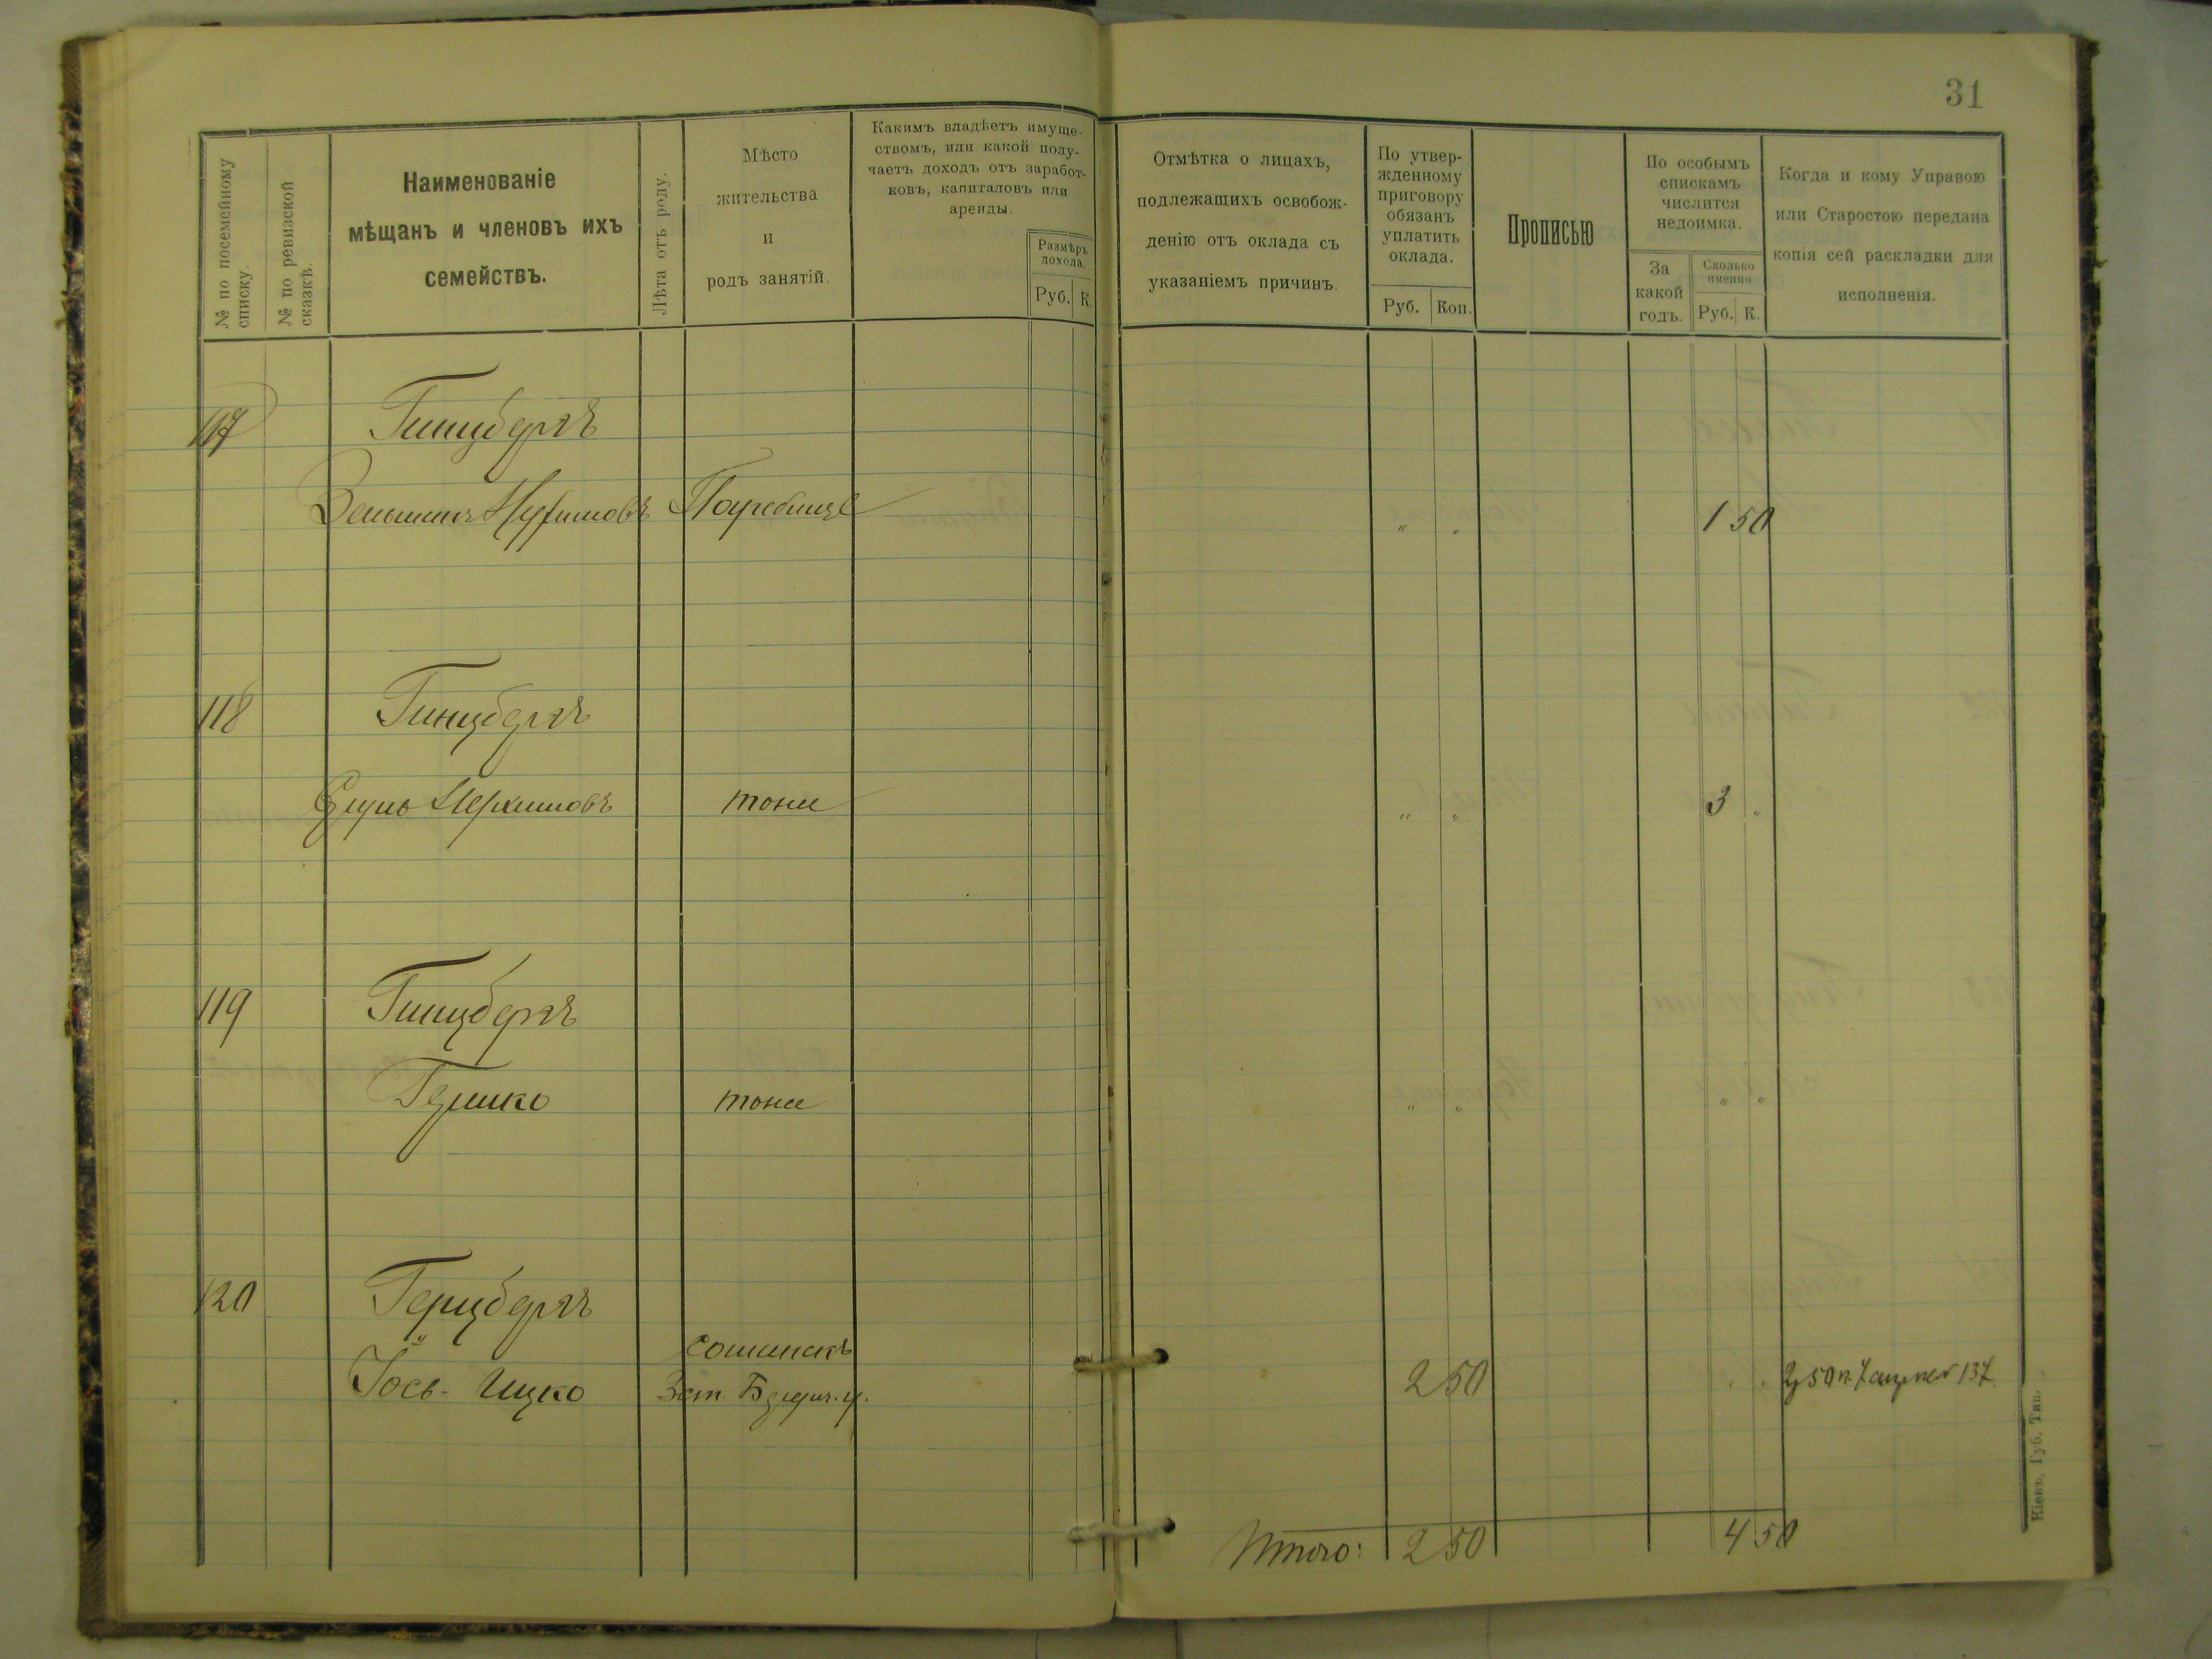 31
№ по посемейному списку.
№ по ревизской сказкѣ.
Наименованіе
мѣщанъ и членовъ ихъ
семействъ.
Лѣта отъ роду.
Мѣсто
жительства
и
родъ занятій.
Какимъ владѣетъ имуще-
ствомъ, или какой полу-
чаетъ доходъ отъ заработ-
ковъ, капиталовъ или
аренды.
Размѣръ
дохода.
Руб. К.
Отмѣтка о лицахъ,
подлежащихъ освобож-
денію отъ оклада съ
указаніемъ причинъ.
По утвер-
жденному
приговору
обязанъ
уплатить
оклада.
Руб. Коп.
Прописью
По особымъ
спискамъ
числится
недоимка.
За
какой
годъ.
Сколько
именно
Руб. К.
Когда и кому Управою
или Старостою передана
копія сей раскладки для
исполненія.
117 Гинцбергъ
Погребище " " 1 50
118 Гинцбергъ
тоже " " 3 "
119 Гинцбергъ
Гершко тоже " " " "
120 Герцбергъ
Іось-Ицко 2 50
Итого: 2 50 4 50
Кіевъ, Губ. Тип.